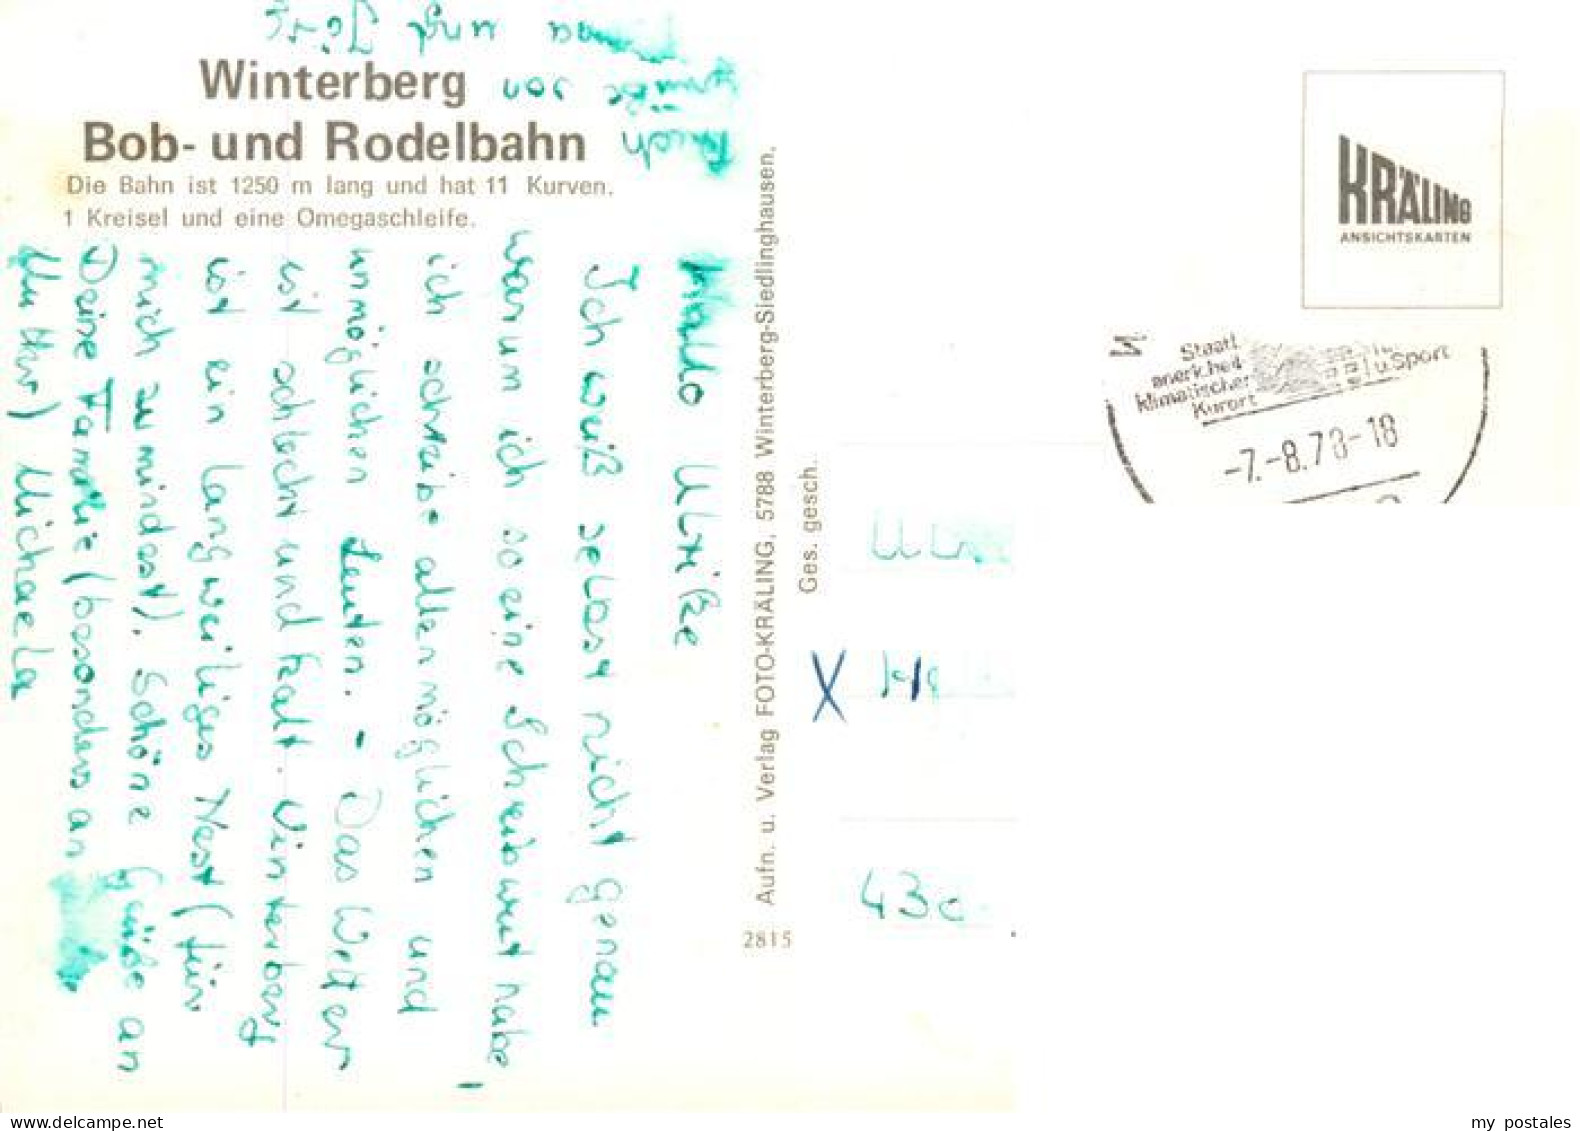 Winterberg
Bob- und Rodelbahn
Die Bahn ist 1250 m lang und hat 11 Kurven.
1 Kreisel und eine Omegaschleife.
Hallo Ulrike
Ich weiß selbst nicht genau
warum ich so eine Schreibwut habe,
ich schreibe allen möglichen und
unmöglichen Leuten. - Das Wetter
ist schlecht und kalt. Winterberg
ist ein langweiliges Nest (für
mich zumindest). Schöne Grüße an
Deine Familie (besonders an
Mutter) Michaela
Grüße von
und
Aufn. u. Verlag FOTO-KRÄLING, 5788 Winterberg-Siedlinghausen.
Ges. gesch.
2815
KRÄLING
ANSICHTSKARTEN
Staatl.
anerk. heil
klimatischer
Kurort
u Sport
-7.-8.78-18
X
430
my postales